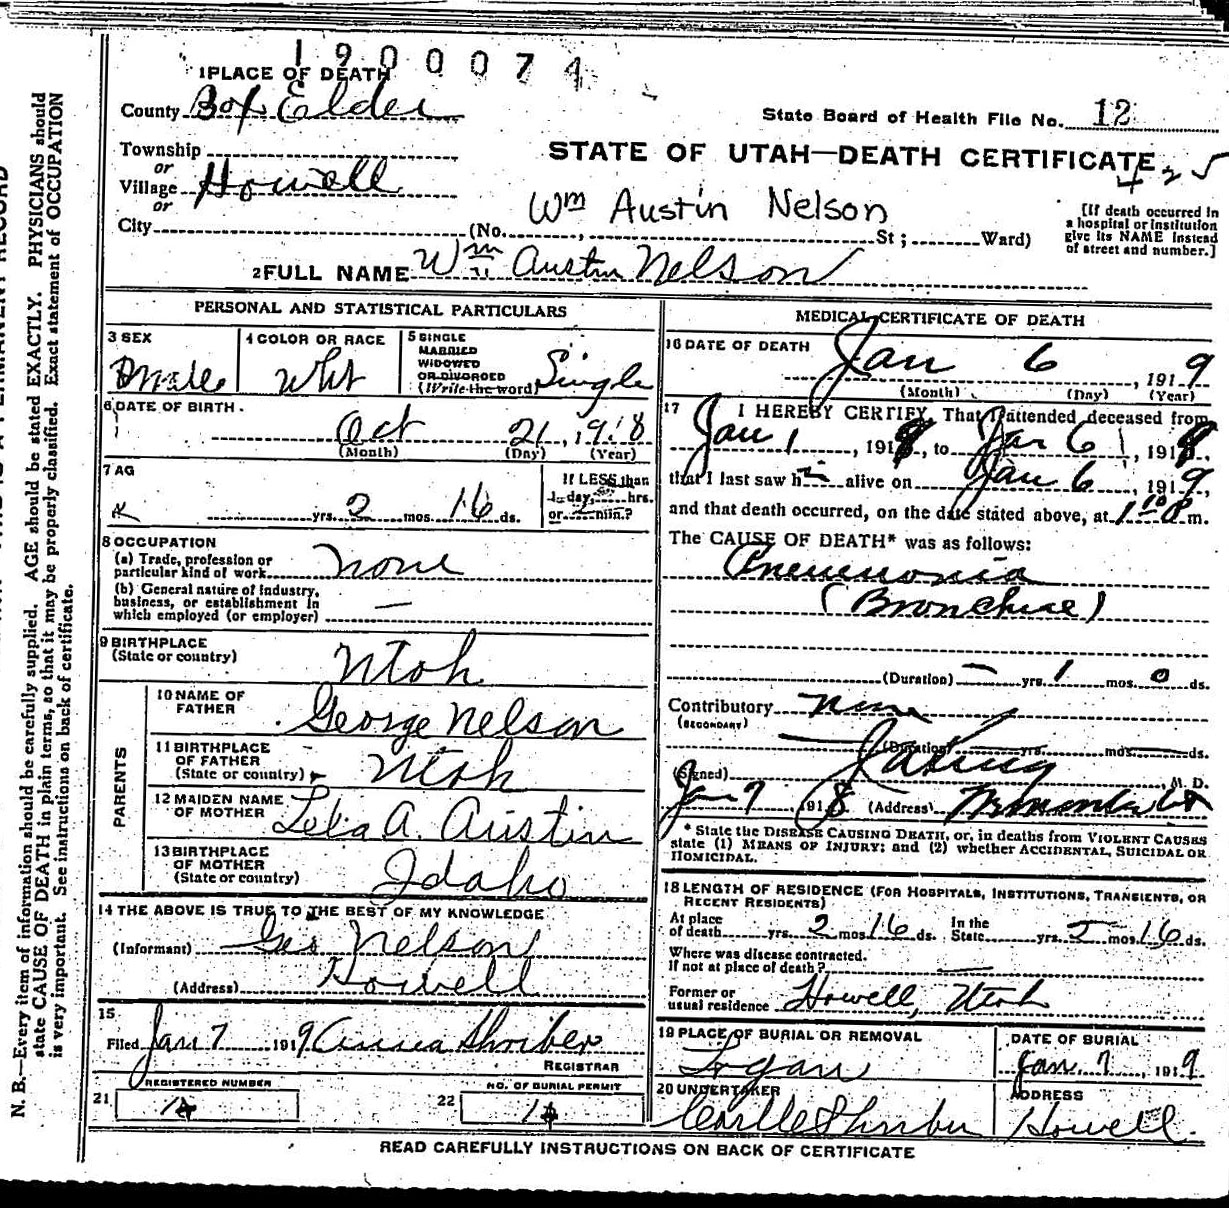 1900074
1 PLACE OF DEATH
County Box Elder
State Board of Health File No. 12
Township
or
Village Howell
or
City (No. St ; Ward)
STATE OF UTAH—DEATH CERTIFICATE
425
Wm Austin Nelson
[If death occurred in
a hospital or institution
give its NAME instead
of street and number.]
2 FULL NAME Wm Austin Nelson
PERSONAL AND STATISTICAL PARTICULARS
3 SEX Male
4 COLOR OR RACE Wht
5 SINGLE
MARRIED
WIDOWED
OR DIVORCED
(Write the word) Single
6 DATE OF BIRTH
Oct 21, 1918
(Month) (Day) (Year)
7 AG
yrs. 2 mos. 16 ds.
If LESS than
1 day, hrs.
or min.?
8 OCCUPATION
(a) Trade, profession or
particular kind of work none
(b) General nature of industry,
business, or establishment in
which employed (or employer) —
9 BIRTHPLACE
(State or country) Utah
PARENTS
10 NAME OF
FATHER George Nelson
11 BIRTHPLACE
OF FATHER
(State or country) Utah
12 MAIDEN NAME
OF MOTHER Lelia A. Austin
13 BIRTHPLACE
OF MOTHER
(State or country) Idaho
14 THE ABOVE IS TRUE TO THE BEST OF MY KNOWLEDGE
(Informant) Geo Nelson
(Address) Howell
15
Filed Jan 7 1919 Anna Shriber
REGISTRAR
REGISTERED NUMBER
21
NO. OF BURIAL PERMIT
22
MEDICAL CERTIFICATE OF DEATH
16 DATE OF DEATH
Jan 6, 1919
(Month) (Day) (Year)
17 I HEREBY CERTIFY, That I attended deceased from
Jan 1, 1919, to Jan 6, 1919,
that I last saw him alive on Jan 6, 1919,
and that death occurred, on the date stated above, at m.
The CAUSE OF DEATH* was as follows:
Pneumonia
(Bronchial)
(Duration) — yrs. 1 mos. 0 ds.
Contributory None
(SECONDARY)
(Duration) yrs. mos. ds.
(Signed) M. D.
Jan 7, 1918 (Address)
* State the DISEASE CAUSING DEATH, or, in deaths from VIOLENT CAUSES
state (1) MEANS OF INJURY; and (2) whether ACCIDENTAL, SUICIDAL OR
HOMICIDAL.
18 LENGTH OF RESIDENCE (FOR HOSPITALS, INSTITUTIONS, TRANSIENTS, OR
RECENT RESIDENTS)
At place
of death yrs. 2 mos. 16 ds.
In the
State yrs. 2 mos. 16 ds.
Where was disease contracted.
If not at place of death? —
Former or
usual residence Howell, Utah
19 PLACE OF BURIAL OR REMOVAL
Logan
DATE OF BURIAL
Jan. 7, 1919
20 UNDERTAKER
ADDRESS
Howell.
READ CAREFULLY INSTRUCTIONS ON BACK OF CERTIFICATE
N. B.—Every item of information should be carefully supplied. AGE should be stated EXACTLY. PHYSICIANS should
state CAUSE OF DEATH in plain terms, so that it may be properly classified. Exact statement of OCCUPATION
is very important. See instructions on back of certificate.